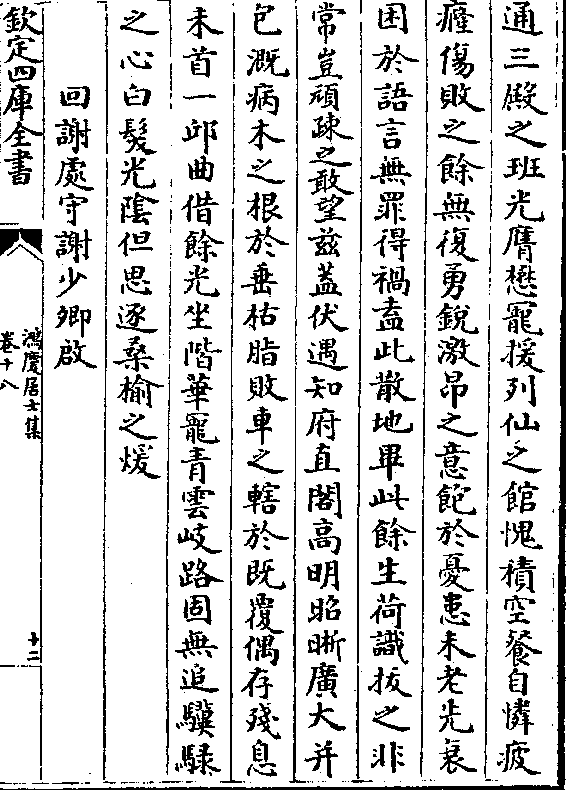 通三殿之班光膺懋寵援列仙之館愧積空餐自憐疲
癃傷敗之餘無復勇銳激昂之意飽於憂患未老先衰
困於語言無罪得禍盍此散地畢此餘生荷識拔之非
常豈頑疎之敢望兹蓋伏遇知府直閣高明昭晣廣大并
包溉病木之根於垂枯脂敗車之轄於既覆偶存殘息
未首一邱曲借餘光坐階華寵青雲岐路固無追驥騄
之心白髮光陰但思逐桑榆之煖
回謝處守謝少卿啟
欽定四庫全書
鴻慶居士集
卷十八
十二